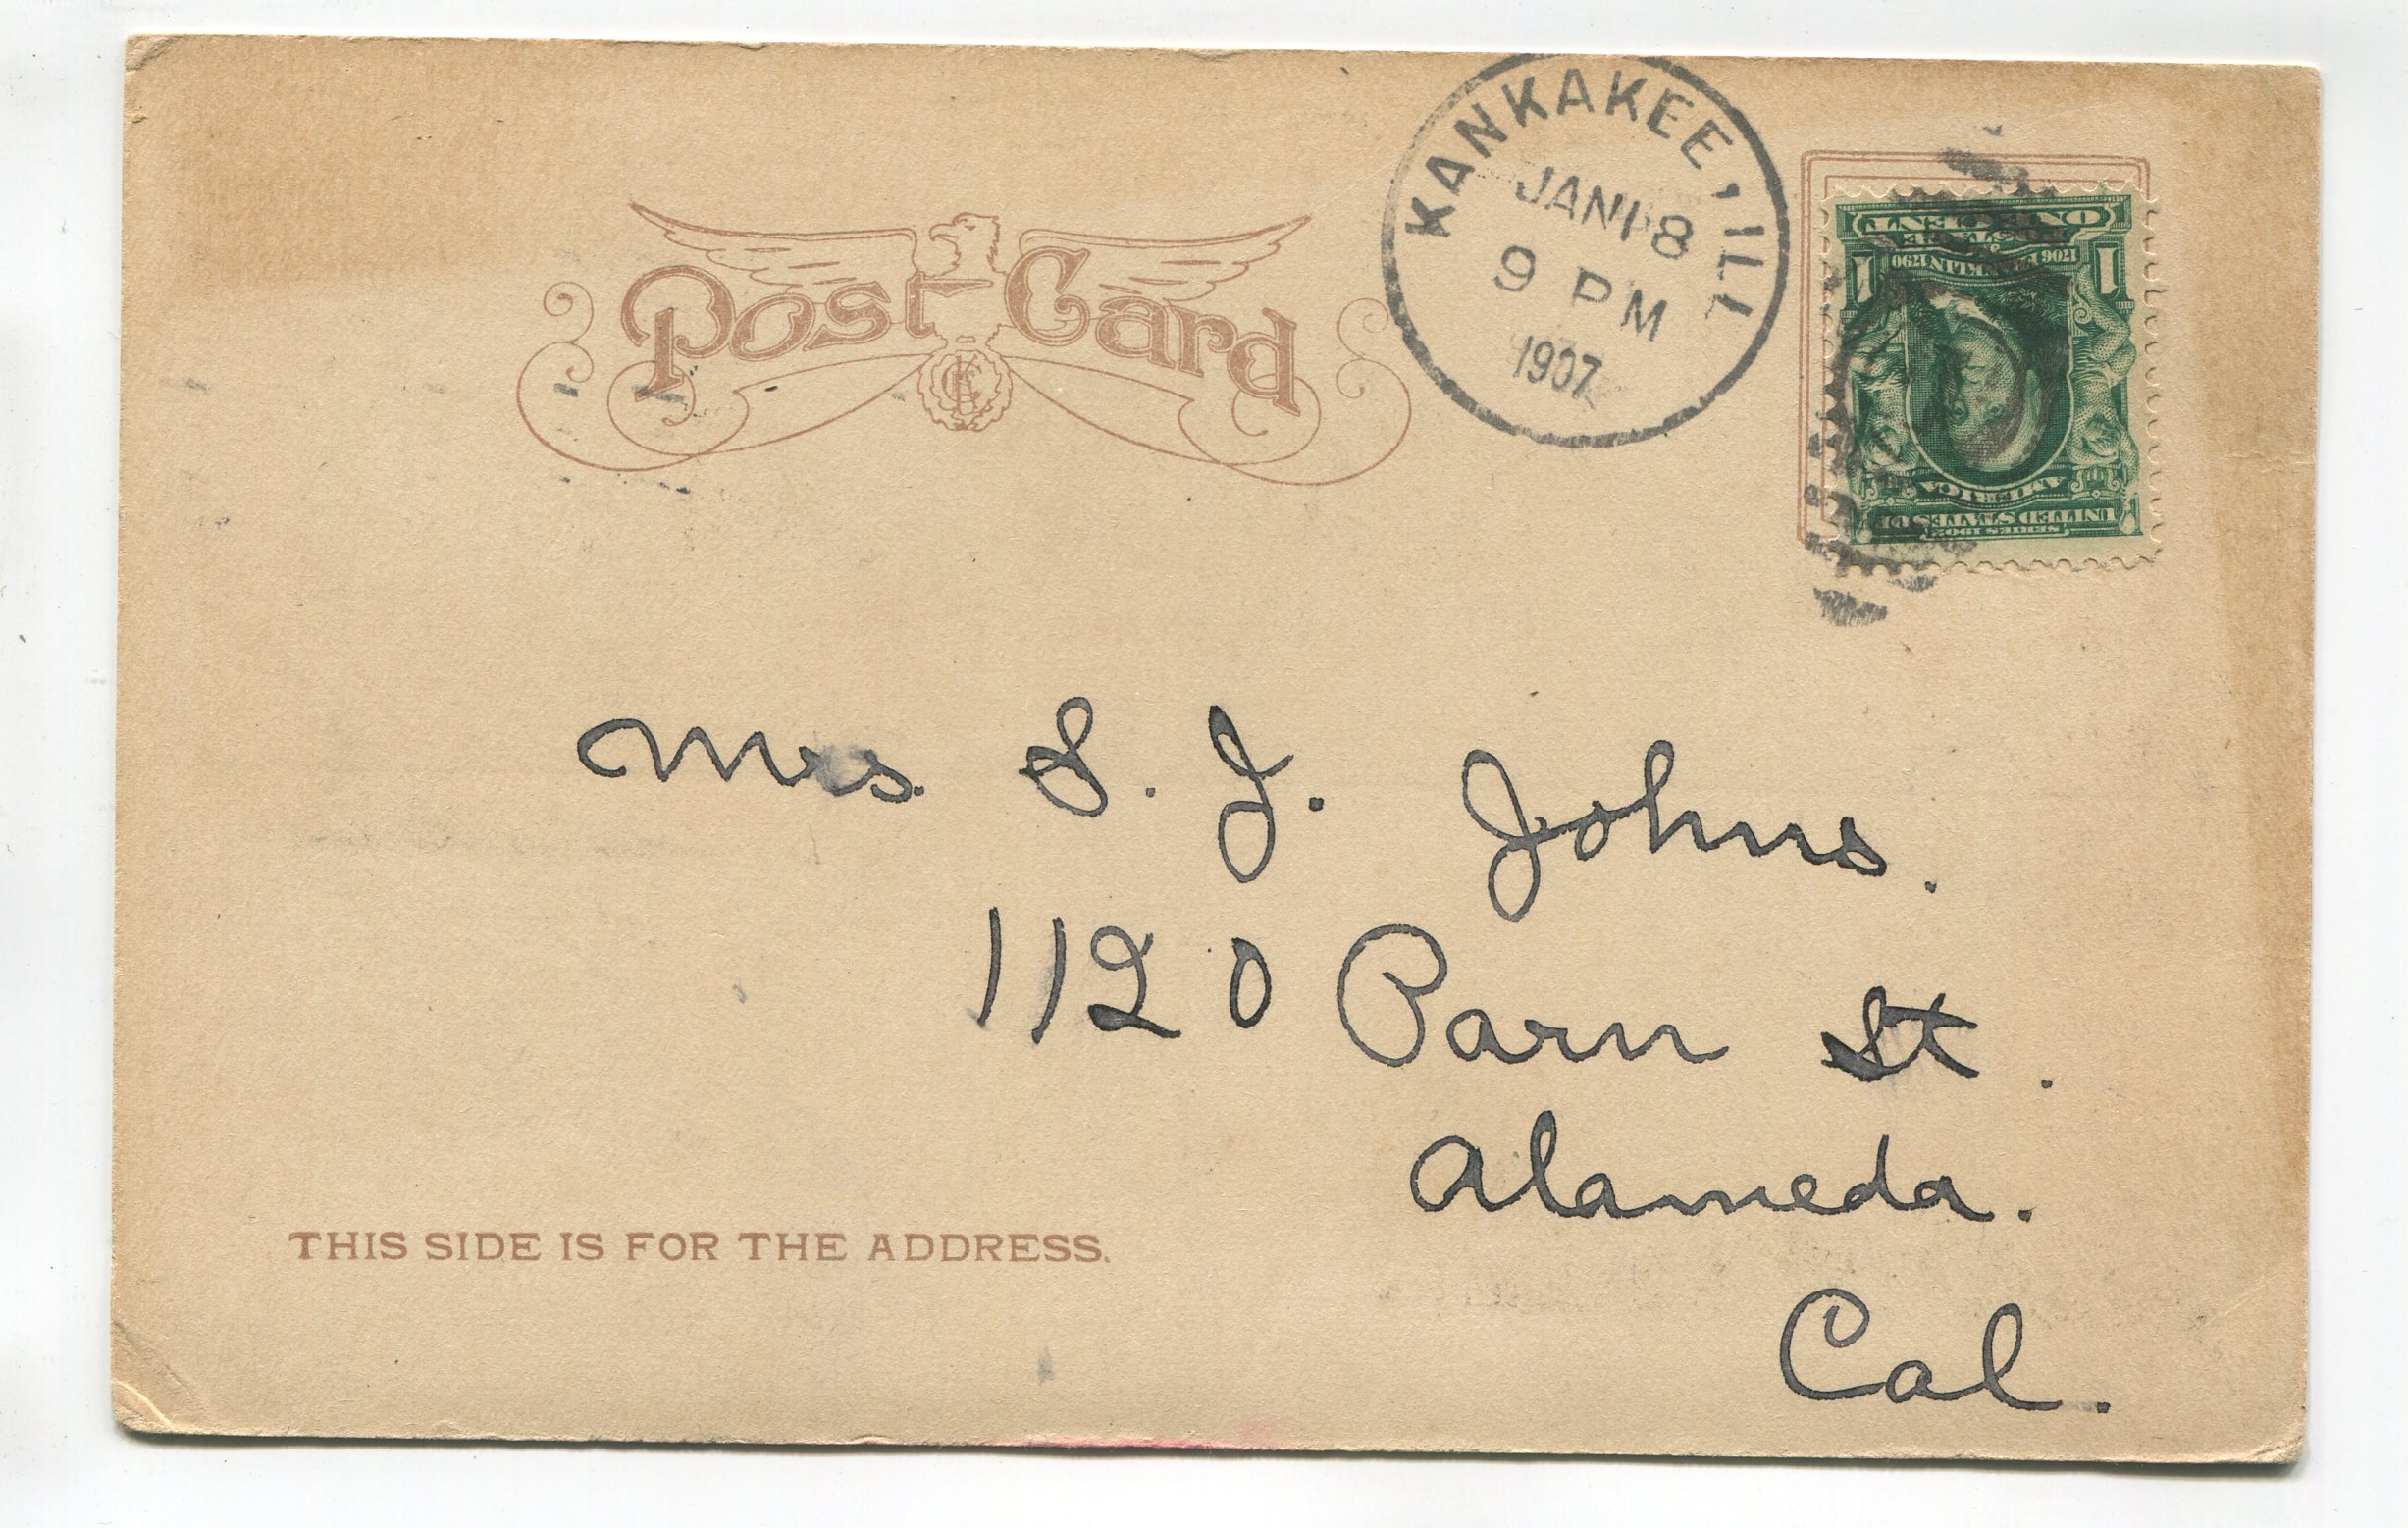 Post Card
KANKAKEE, ILL
JAN 18
9 PM
1907
ONE CENT
POSTAGE
1 1706 FRANKLIN 1790 1
AMERICA
UNITED STATES OF
SERIES 1902
Mrs. S. J. Johns.
1120 Parn St.
Alameda.
Cal.
THIS SIDE IS FOR THE ADDRESS.